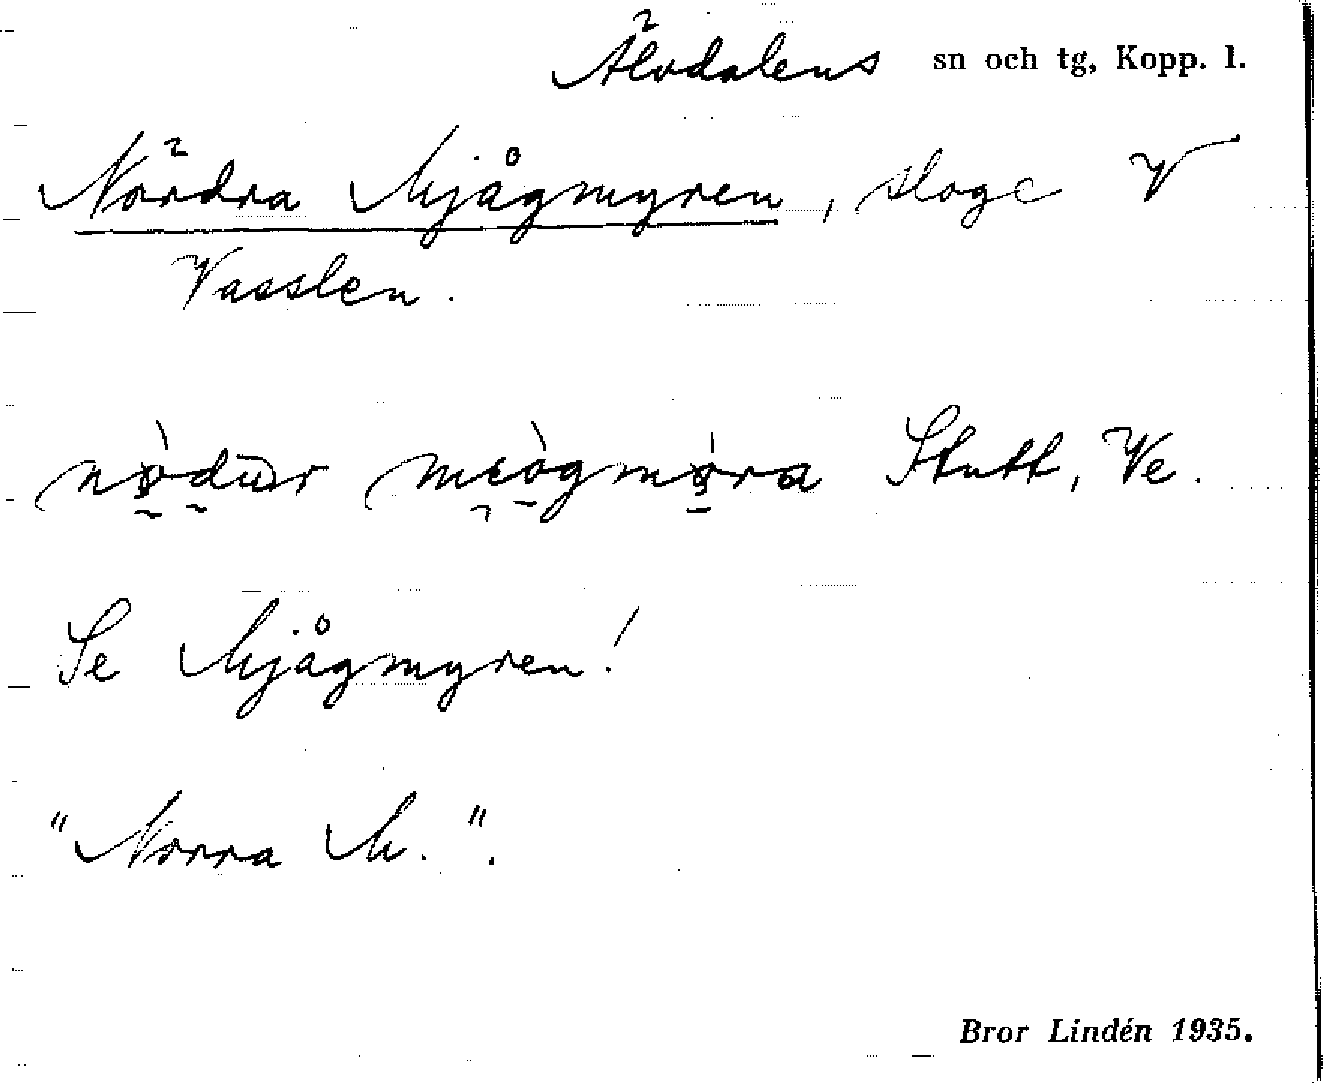 Älvdalens sn och tg, Kopp. l.
Nördra Mjågmyren, sloge V
Vasslen.
Stutt, Ve.
Se Mjågmyren!
"Norra M.".
Bror Lindén 1935.